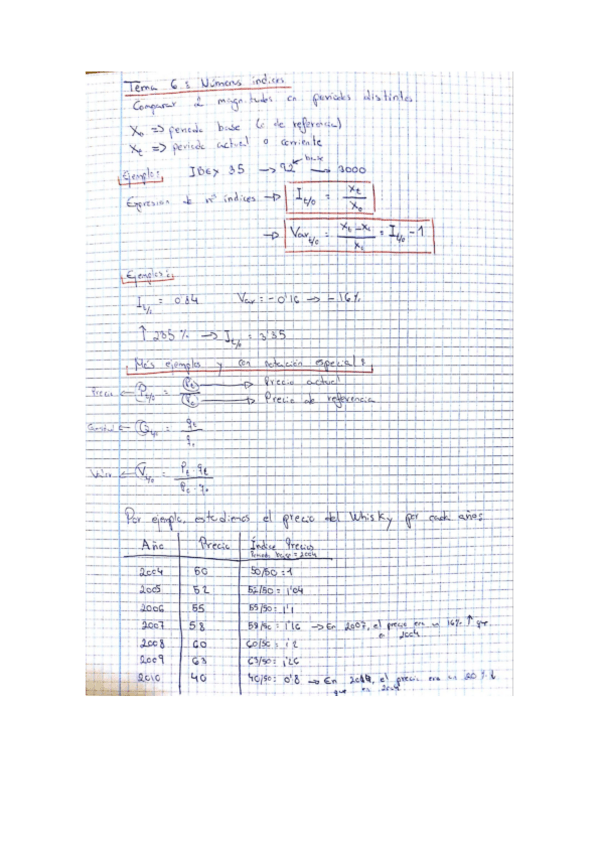 Tema 6: Números índices
Comparar 2 magnitudes en periodos distintos.
X₀ => periodo base (o de referencia)
Xₜ => periodo actual o corriente
Ejemplo: IBEX 35 → 92 base → 3000
Expresión de nº índices → I t/0 = Xₜ / X₀
→ Var t/0 = Xₜ - X₀ / X₀ = I t/0 - 1
Ejemplos:
I t/0 = 0'84 Var = -0'16 → -16%
↑ 235% → I t/0 = 3'35
Más ejemplos y con notación especial:
Precio ← P t/0 = Pₜ / P₀ → Precio actual
→ Precio de referencia
Cantidad ← Q t/0 = qₜ / q₀
Valor ← V t/0 = Pₜ · qₜ / P₀ · q₀
Por ejemplo, estudiemos el precio del Whisky por cada años
Año Precio Índice Precios
Periodo base = 2004
2004 50 50/50 = 1
2005 52 52/50 = 1'04
2006 55 55/50 = 1'1
2007 58 58/50 = 1'16 → En 2007, el precio era un 16% ↑ que
2004
2008 60 60/50 = 1'2
2009 63 63/50 = 1'26
2010 40 40/50 = 0'8 → En el precio era un 20%
que en 2004